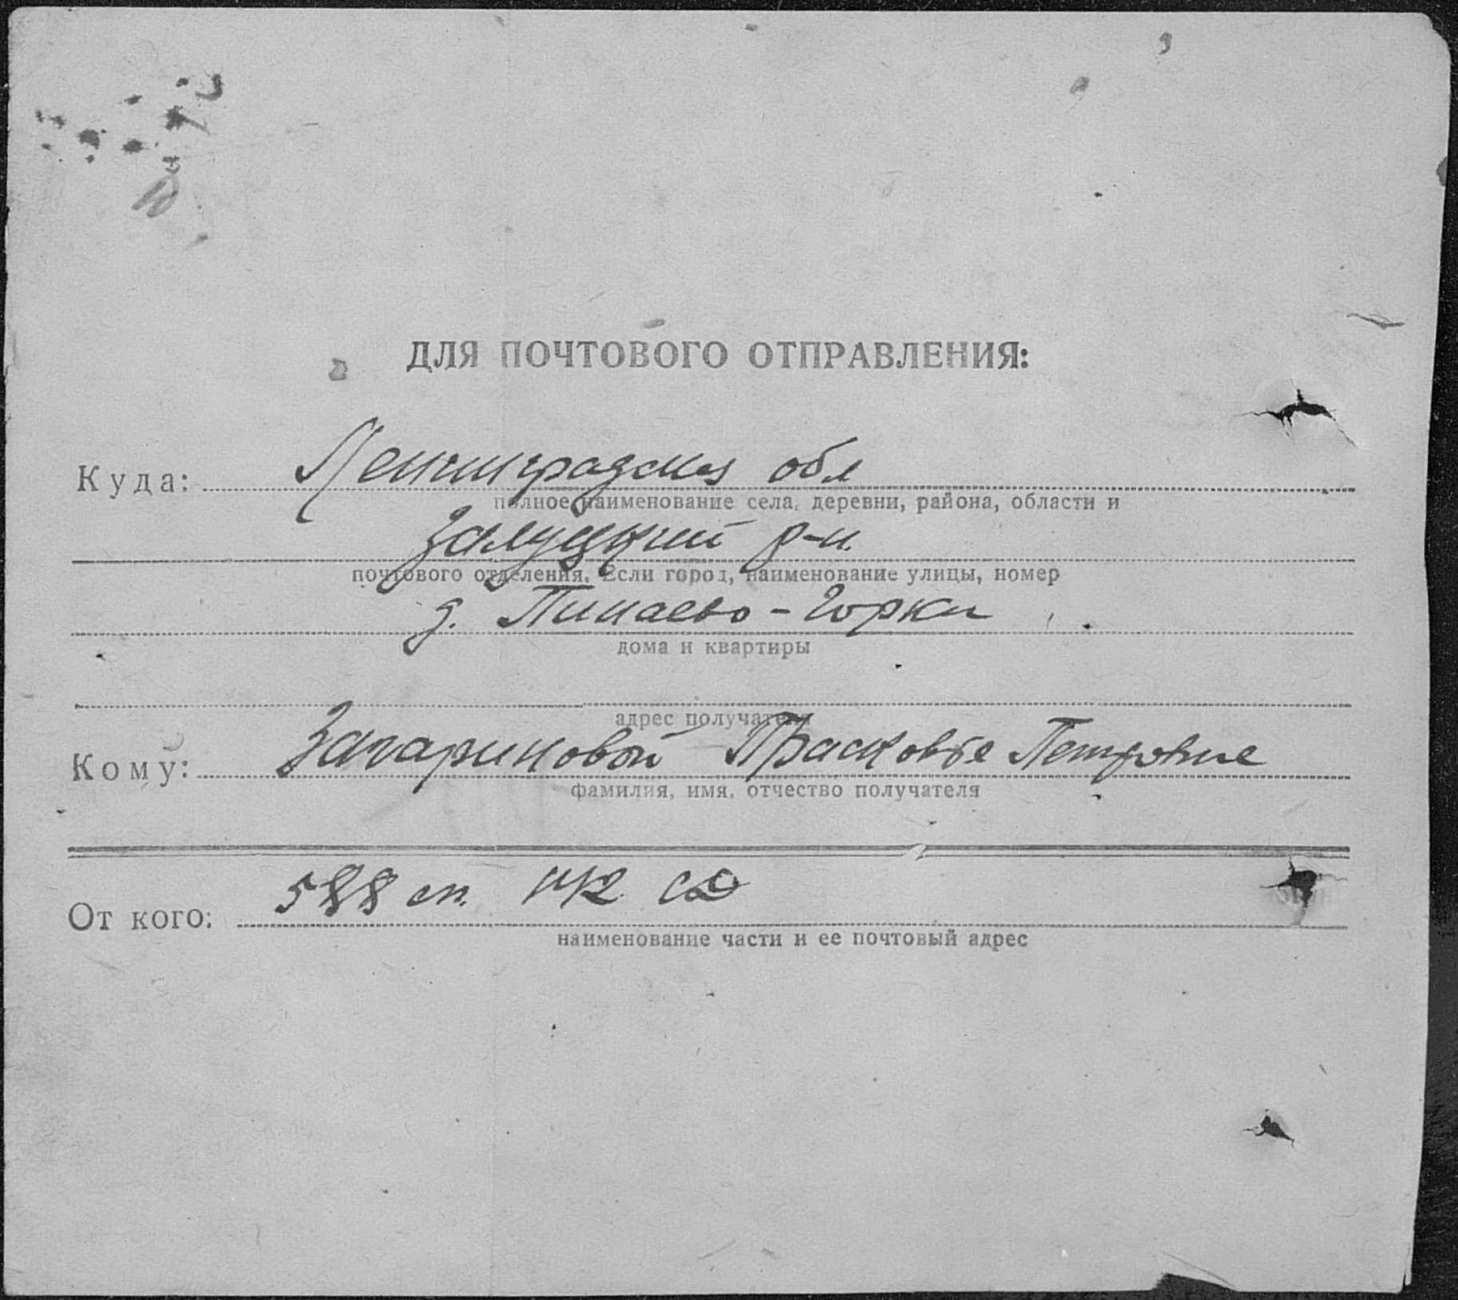 ДЛЯ ПОЧТОВОГО ОТПРАВЛЕНИЯ:
Куда: Ленинградская обл
полное наименование села, деревни, района, области и
Залуцкий р-н.
почтового отделения. Если город, наименование улицы, номер
д. Пинаево-Горки
дома и квартиры
адрес получателя
Кому: Захариновой Прасковье Петровне
фамилия, имя, отчество получателя
От кого: 588 сп. 142 СД
наименование части и ее почтовый адрес